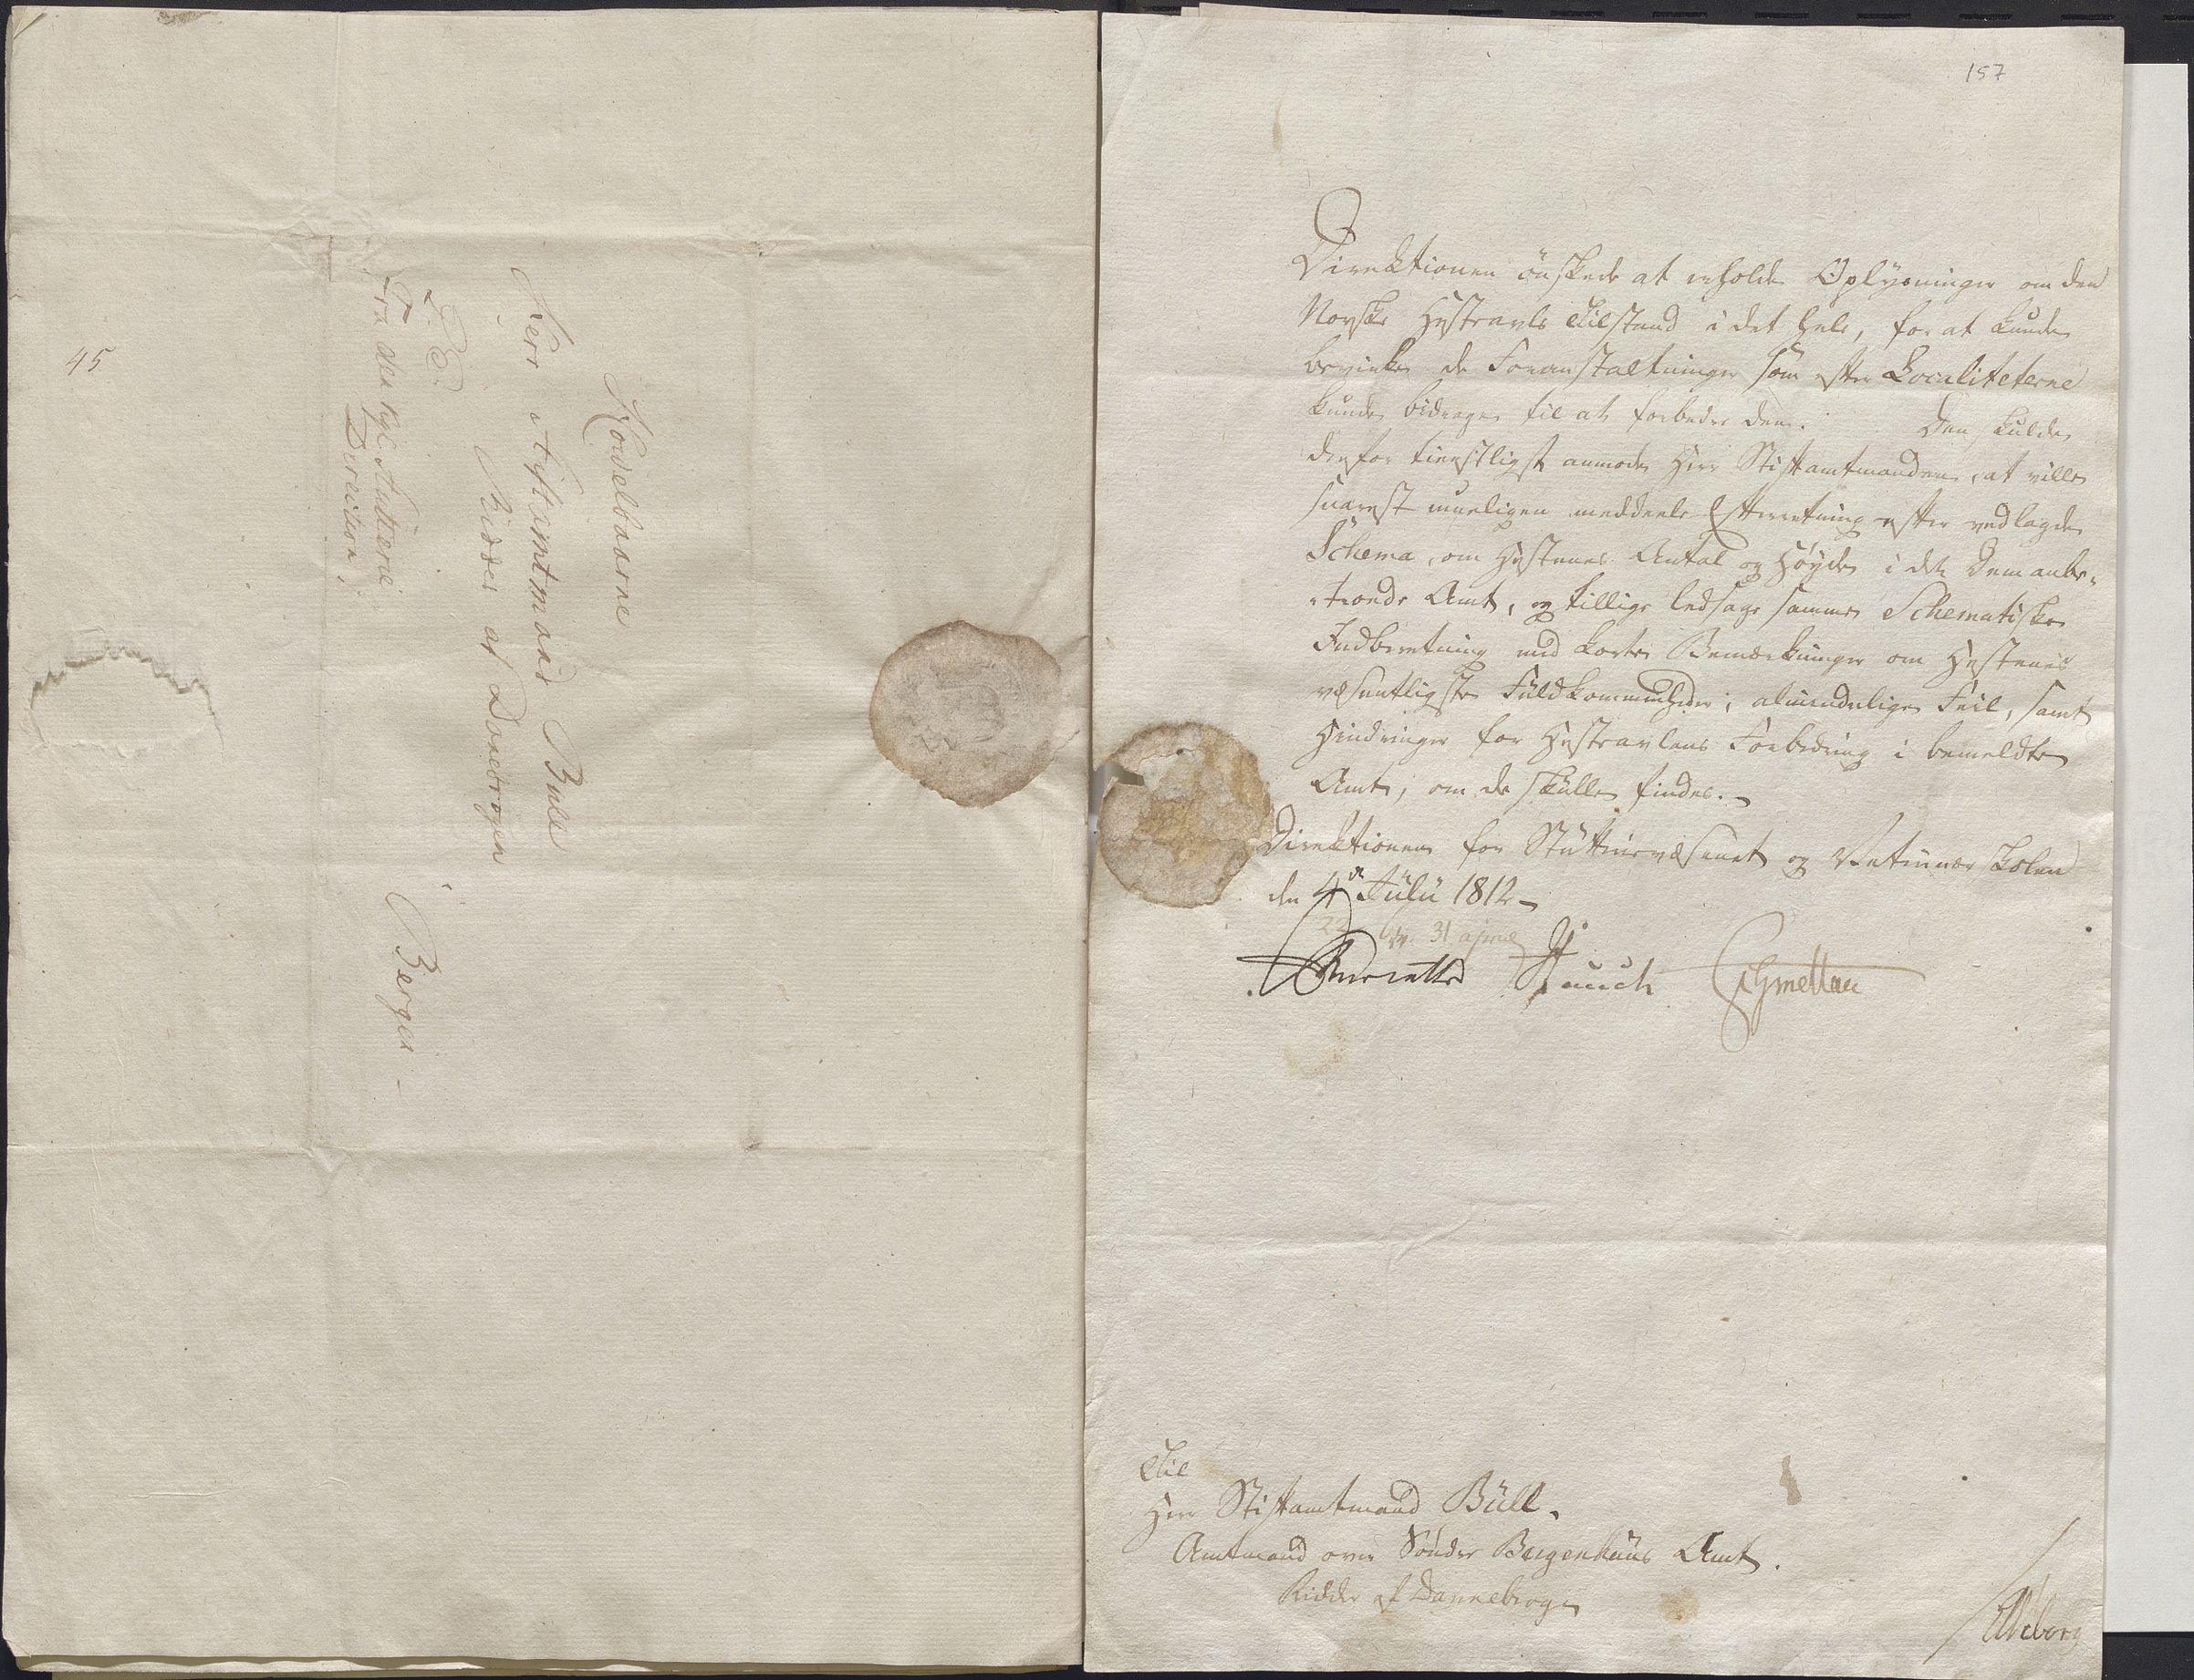 45
Herr Stiftamtmand Bull
Ridder af Dannebrogen
Fra den kgl. Stutterie
Direction,
Bergen
157
Direktionen önskede at erholde Oplysninger om den
Norske Hesteavls Tilstand i det hele, for at kunde
bevirke de Foranstaltninger som efter Localiteterne
kunde bidrage til at forbedre den. Den skulde
derfor tienstligst anmode Herr Stiftamtmanden, at ville
snarest mueligen meddeele Efterretning efter vedlagde
Schema, om Hestenes Antal og Høyde i det Dem anbe-
troede Amt, og tillige ledsage samme Schematiske
Indberetning med korte Bemærkninger om Hestenes
væsentligste Fuldkommenheder, almindelige Feil, samt
Hindringer for Hesteavlens Forbedring i bemeldte
Amt, om de skulle findes.
Direktionen for Stutterievæsenet og Veterinær Skolen
den 4de Julii 1812
Hauch Schmettau
Til
Herr Stiftamtmand Bull.
Amtmand over Sönder Bergenhuus Amt.
Ridder af Dannebrogen